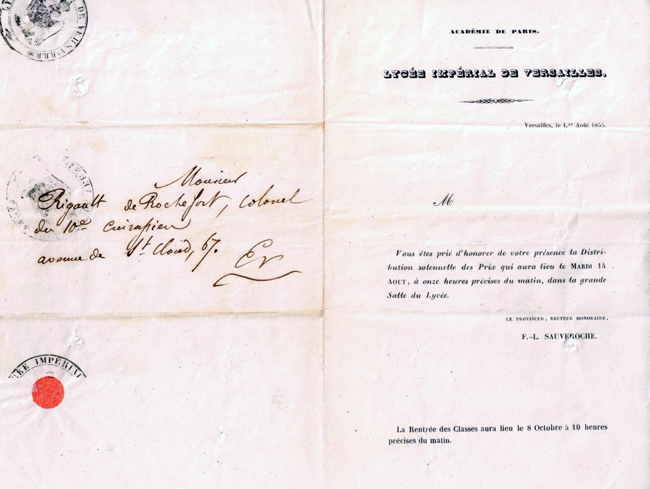 DE VERSAILLES
Monsieur
Rigault de Rochefort, Colonel
du 10e Cuirassier
avenue de St Cloud, 67.
EV
LYCÉE IMPÉRIAL
ACADÉMIE DE PARIS.
LYCÉE IMPÉRIAL DE VERSAILLES.
Versailles, le 1.er Août 1855.
M
Vous êtes prié d'honorer de votre présence la Distri-
bution solennelle des Prix qui aura lieu le MARDI 14
AOUT, à onze heures précises du matin, dans la grande
Salle du Lycée.
LE PROVISEUR, RECTEUR HONORAIRE,
F.-L. SAUVEROCHE.
La Rentrée des Classes aura lieu le 8 Octobre à 10 heures
précises du matin.